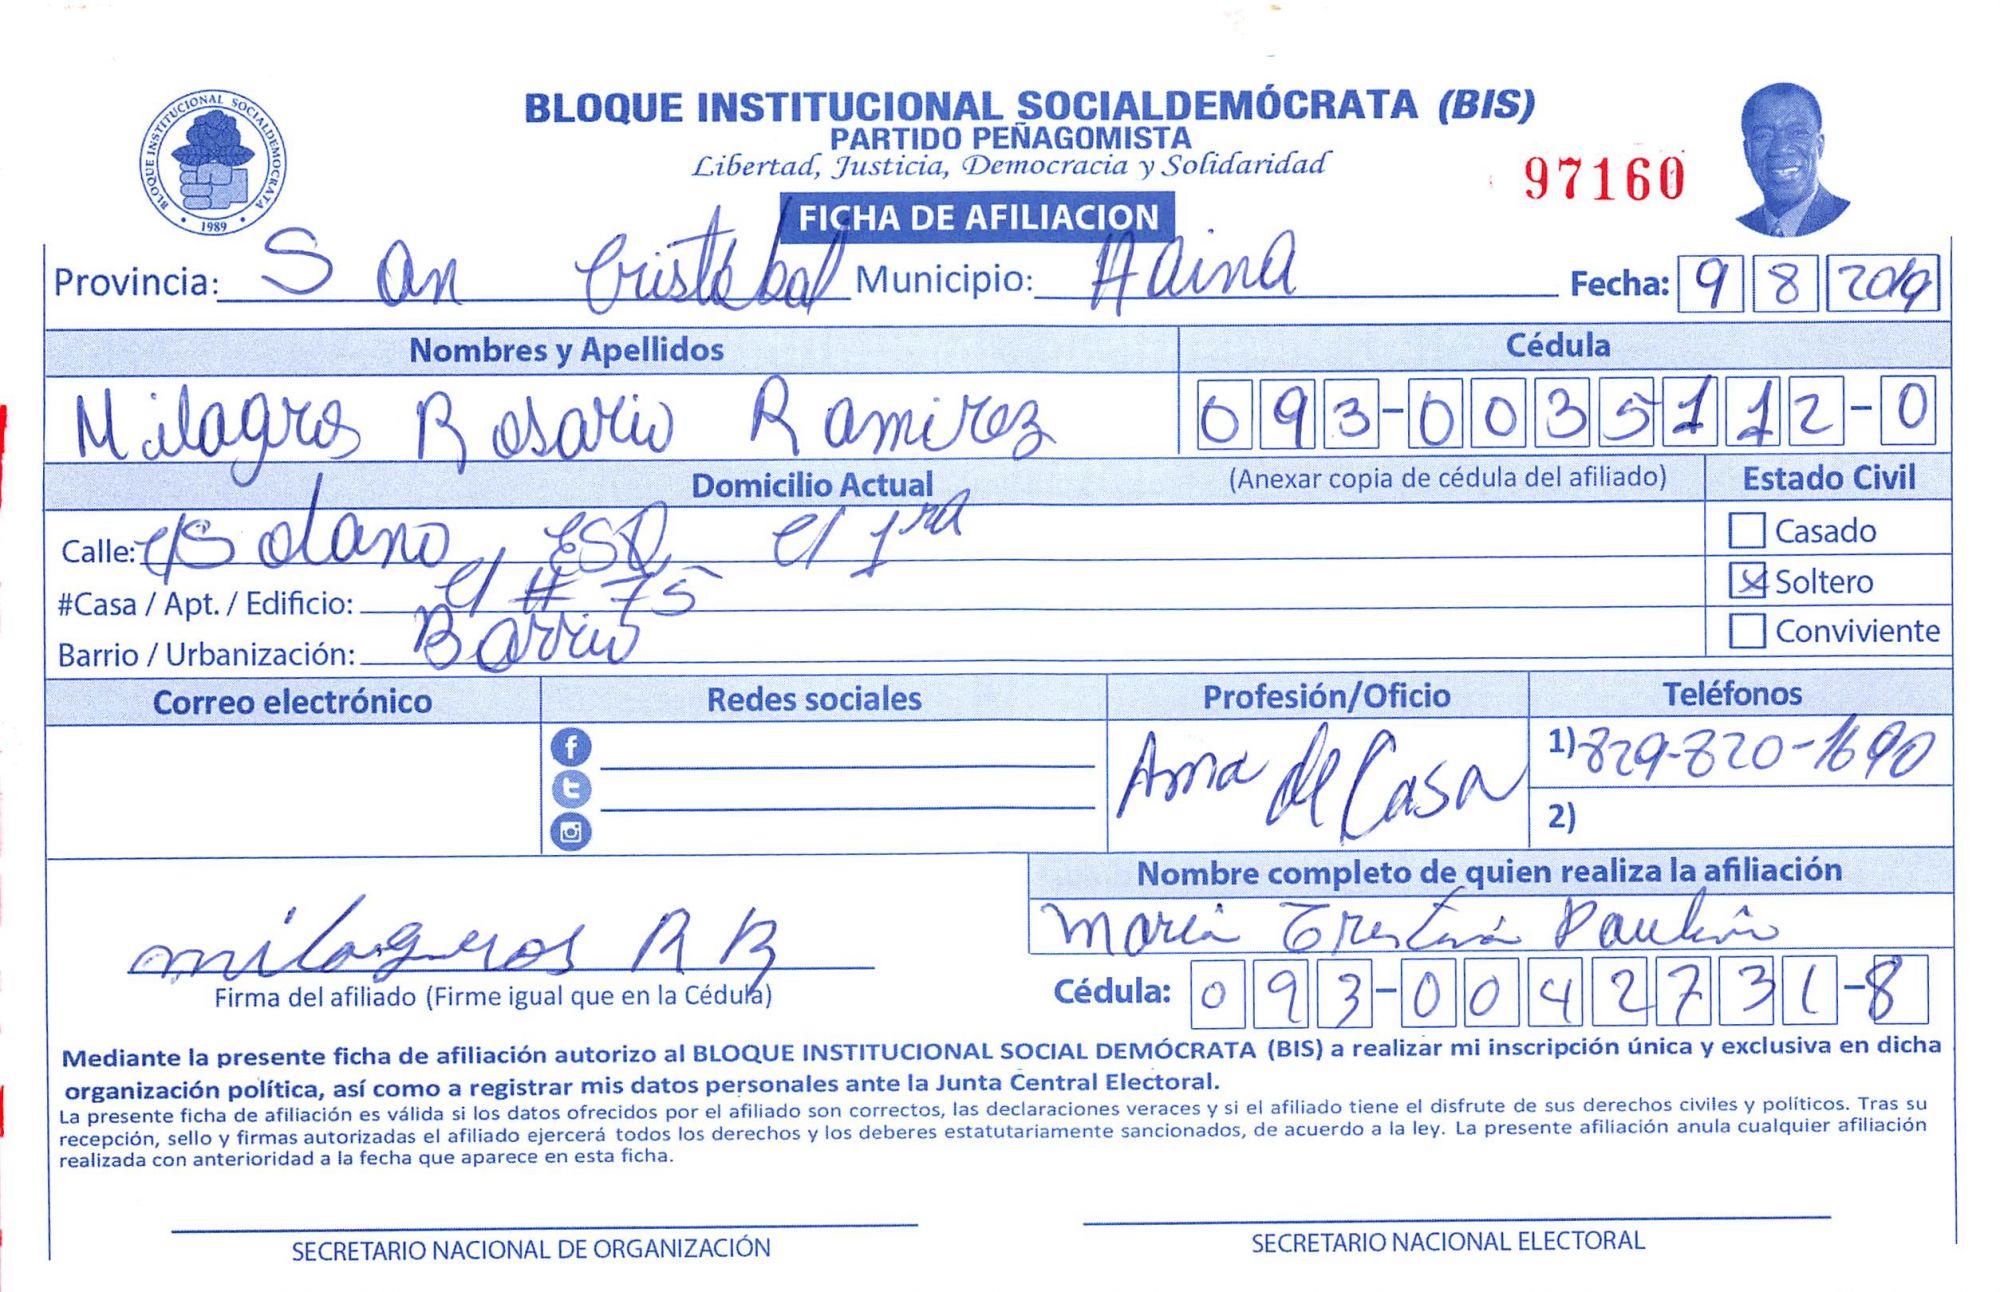 BLOQUE INSTITUCIONAL SOCIALDEMÓCRATA (BIS)
PARTIDO PEÑAGOMISTA
Libertad, Justicia, Democracia y Solidaridad
97160
BLOQUE INSTITUCIONAL SOCIALDEMOCRATA
1989
FICHA DE AFILIACION
Provincia: San Cristóbal Municipio: Haina Fecha: 9 8 2019
Nombres y Apellidos Cédula
Milagros Rosario Ramirez 093-0035112-0
Domicilio Actual (Anexar copia de cédula del afiliado) Estado Civil
Calle: c/ Solano, ESQ. c/ 1ra Casado
#Casa / Apt. / Edificio: c/ # 75 Soltero
Barrio / Urbanización: Barrio Conviviente
Correo electrónico Redes sociales Profesión/Oficio Teléfonos
Ama de Casa 1) 829-820-1690
2)
Nombre completo de quien realiza la afiliación
milagros R R Maria Paulino
Firma del afiliado (Firme igual que en la Cédula) Cédula: 093-0042731-8
Mediante la presente ficha de afiliación autorizo al BLOQUE INSTITUCIONAL SOCIAL DEMÓCRATA (BIS) a realizar mi inscripción única y exclusiva en dicha
organización política, así como a registrar mis datos personales ante la Junta Central Electoral.
La presente ficha de afiliación es válida si los datos ofrecidos por el afiliado son correctos, las declaraciones veraces y si el afiliado tiene el disfrute de sus derechos civiles y políticos. Tras su
recepción, sello y firmas autorizadas el afiliado ejercerá todos los derechos y los deberes estatutariamente sancionados, de acuerdo a la ley. La presente afiliación anula cualquier afiliación
realizada con anterioridad a la fecha que aparece en esta ficha.
SECRETARIO NACIONAL DE ORGANIZACIÓN SECRETARIO NACIONAL ELECTORAL